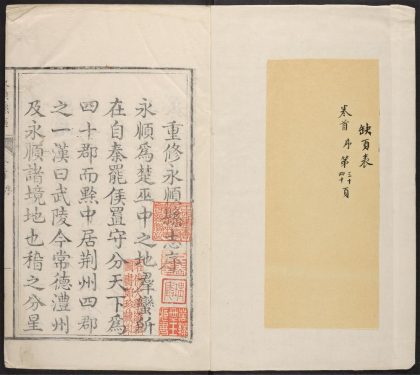 缺頁表
卷首 序 第三十頁
四十
重修永順縣志序
永順為楚巫中之地羣蠻所
在自秦罷侯置守分天下為
四十郡而黔中居荆州四郡
之一漢曰武陵今常德澧州
及永順諸境地也稽之分星